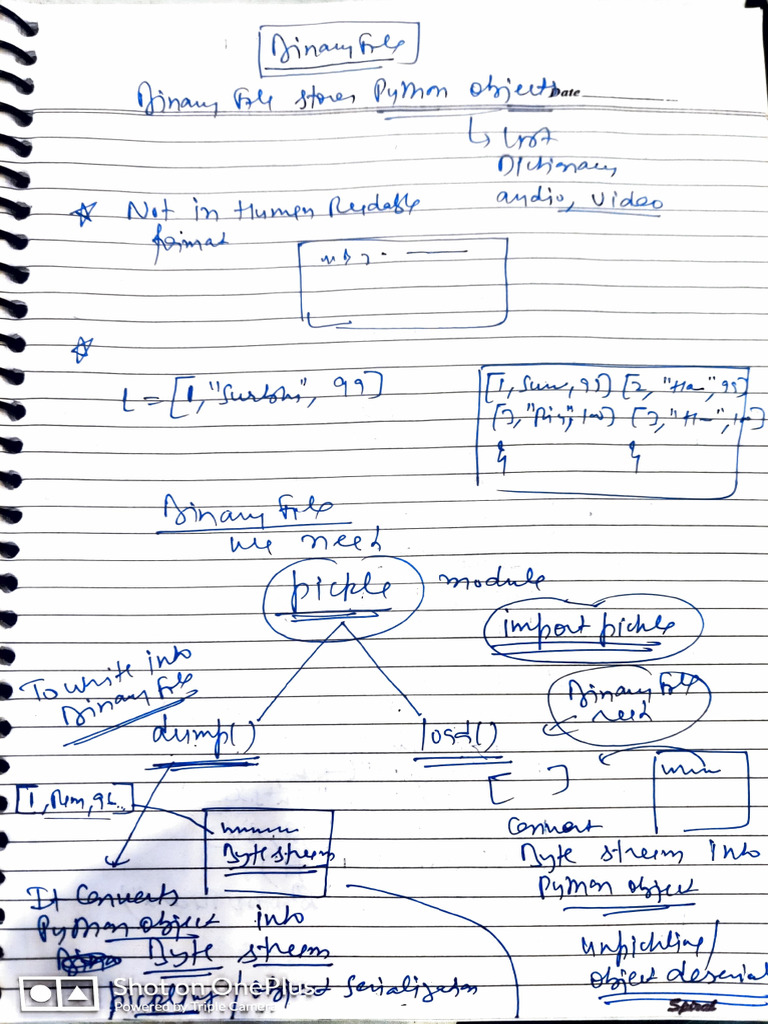 Binary File
Binary File stores Python objects
Date
↳ List
Dictionary
audio, video
☆ Not in Human Readable
format
☆
L = [1, "Surbhi", 99]
[1, Sur, 99] [2, "Ha", 99]
Binary File
we need
pickle module
import pickle
To write into
Binary File
Binary File
read
dump()
load()
[ ]
[1, Ram, 92]
Byte stream
Convert
Byte stream into
Python object
It converts
Python object into
Byte stream
unpickling/
object deserial
pickling / object serialization
Shot on OnePlus
Powered by Triple Camera
Spiral